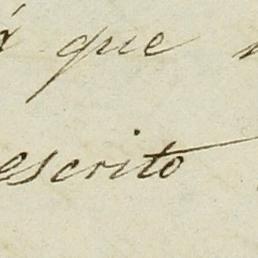 que
escrito